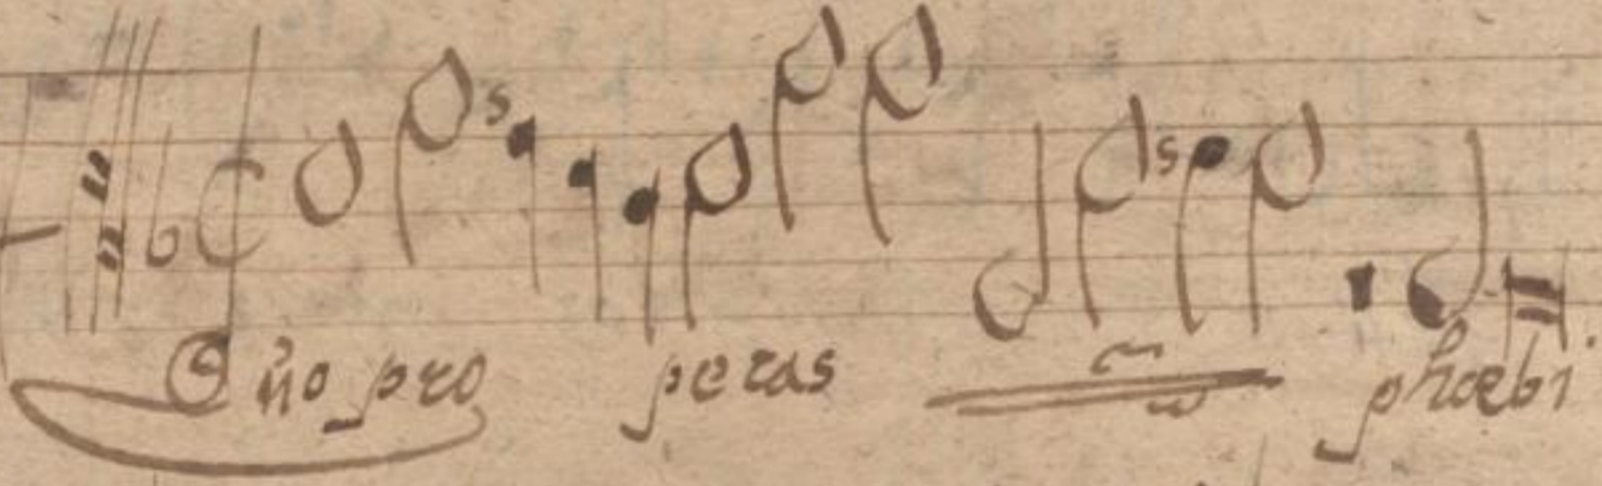 Quo pro peras phoebi